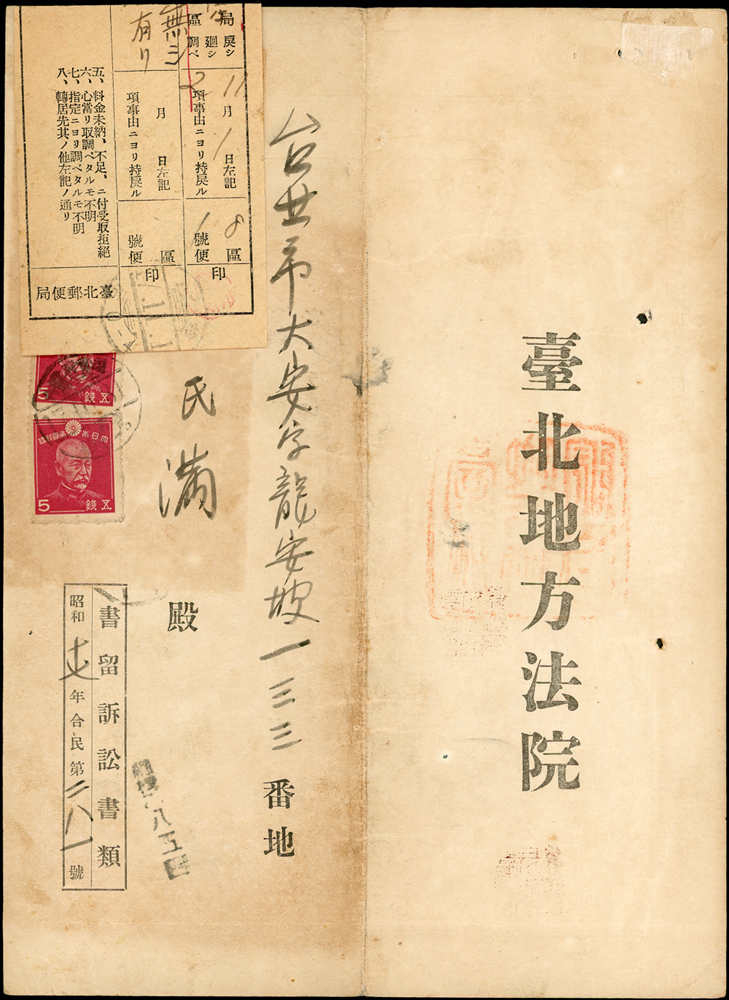 臺北地方法院
台北市大安字龍安坡一三三番地
民滿殿
書留訴訟書類
昭和十七年合民第二八一號
八五
大日本帝國郵便
5 錢五
5 錢五
局
區
戾シ
廻シ
調ベ
11月1日左記
項事由ニヨリ持戾ル
8區
1號便
印
無シ
有リ
月 日左記
項事由ニヨリ持戾ル
區
號便
印
五、料金未納、不足、ニ付受取拒絕
六、心當リ取調ベタルモ不明
七、指定ニヨリ調ベタルモ不明
八、轉居先其ノ他左記ノ通リ
臺北郵便局